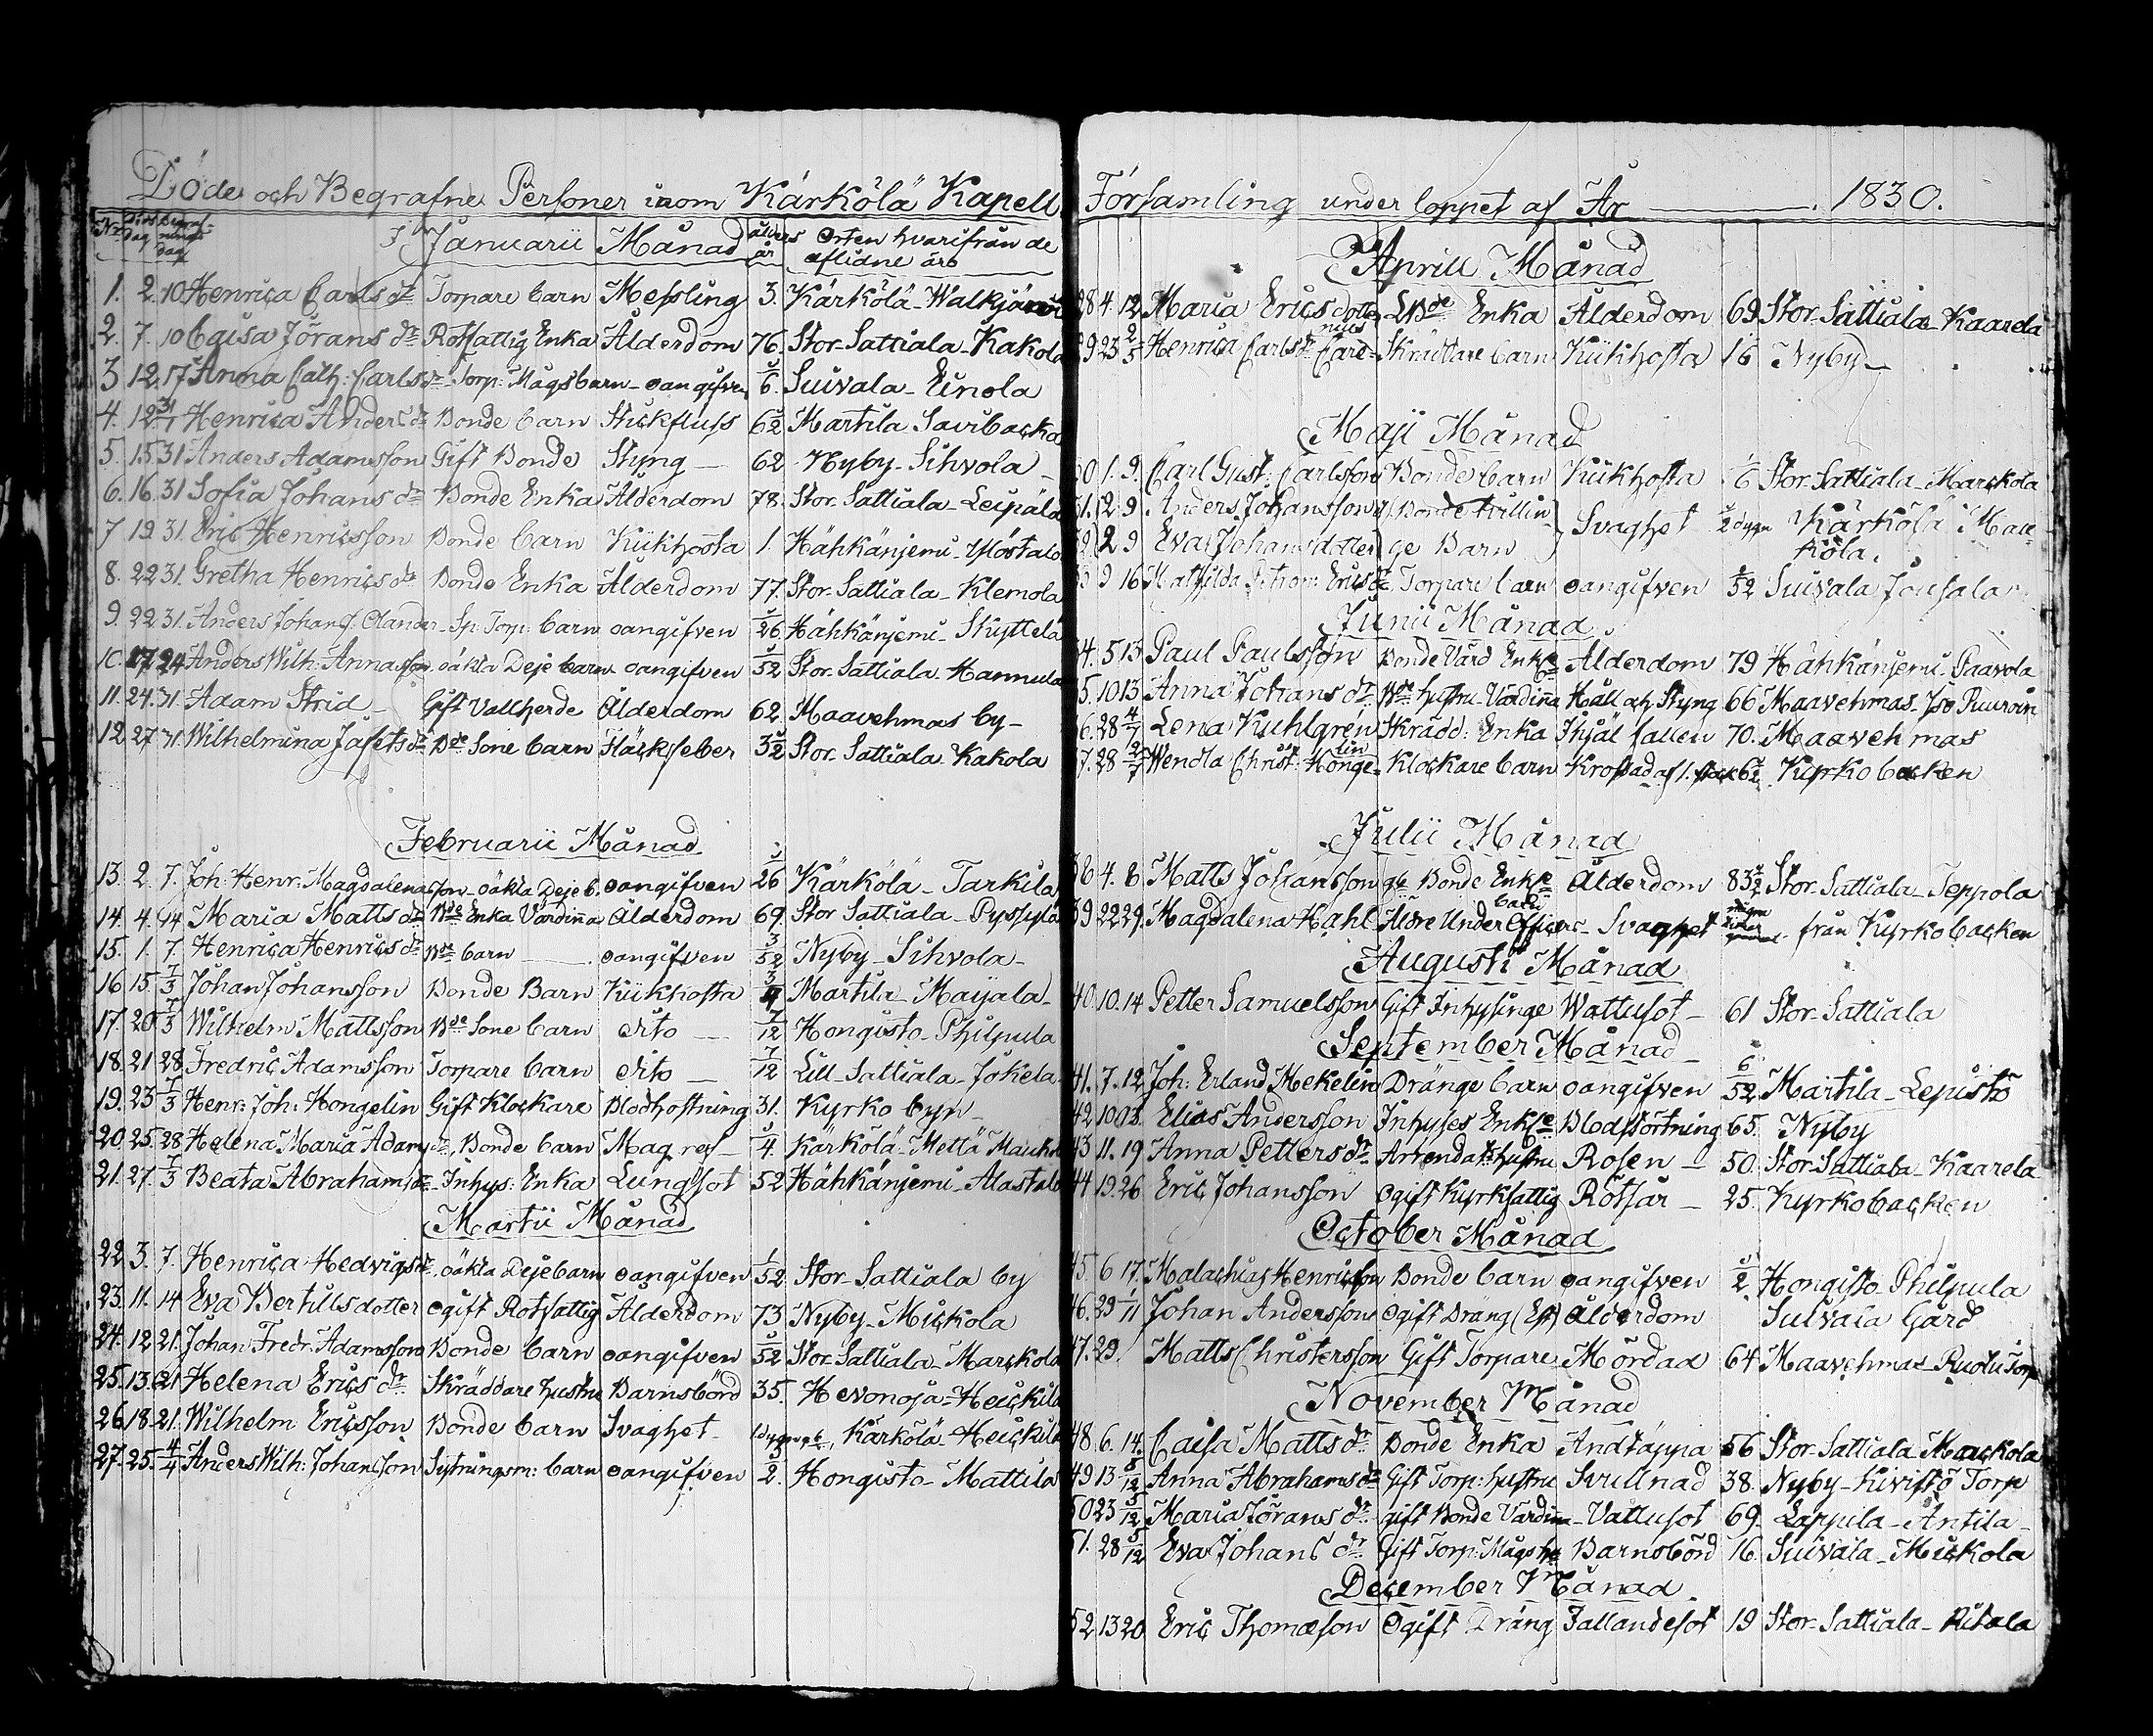 Döde och Begrafne Personer inom Kärkölä Kapell
No Döds dag Begrafnings dag
I Januarii Månad ålders år Orten hvarifrån de aflidne äro
1. 2. 10 Henrica Carls dr Torpare barn Messling 3. Kärkölä - Walkjärvi
2. 7. 10 Caisa Jörans dr Rotfattig Enka Ålderdom 76. Stor-Sattiala - Kakola
3 12 17 Anna Cath: Carls dr Torp: Mågs barn - oangifven 5/6. Suivala - Einola
4. 12 31/1 Henrica Anders dr Bonde barn Stickfluss Martila Savibacka
5. 15 31 Anders Adamsson Gift Bonde Styng 62. Nyby - Sihvola
6. 16. 31 Sofia Johans dr Bonde Enka Ålderdom 78. Stor Sattiala - Leipälä
7 19 31. Eric Henricsson Bonde barn Kikhosta 1. Hähkänjemi - Ylöstalo
8. 22 31. Gretha Henrics dr Bonde Enka Ålderdom 77. Stor-Sattiala - Klemola
9. 22 31. Anders Johans: Olander - Sp: Torp: barn oangifven /26. Hähkänjemi - Skyttelä
10. 17 24 Anders Wilh: Annasson. oäkta Deje barn - oangifven /52 Stor-Sattiala - Hannula
11. 24. 31. Adam Strid - Gift Vallherde Ålderdom 62. Maavehmas by -
12 27 31. Wilhelmina Jafets dr Bde Sone barn Fläcksfeber 3 /2 Stor-Sattiala Kakola
Februarii Månad
13. 2. 7. Joh: Henr: Magdalenasson - oäkta Deje b. oangifven /26 Kärkölä - Tarkila
14. 4. 14 Maria Matts dr Bde Enka Värdinna Ålderdom 69. Stor Sattiala - Pyssylä
15. 1. 7. Henrica Henrics dr Bde barn oangifven 3/52 Nyby - Sihvola -
16 15. 7/3 Johan Johansson Bonde Barn Kikhosta Martila - Maijala -
17. 20 7/3 Wilhelm Mattsson Bde Sone barn dito 7/12 Hongisto - Philpula
18. 21 28. Fredric Adamsson Torpare barn dito 7/12 Lill-Sattiala - Jokela
19. 23 7/3 Henr: Joh: Hongelin Gift Klockare Blodhostning 31. Kyrko byn
20. 25. 28 Helena Maria Adams dr Bonde barn Mag ref /4. Kärkölä - Mettä Mauko
21. 27. 7/3 Beata Abrahams dr - Inhys: Enka Lungsot 52 Hähkänjemi - Alastalo
Martii Månad
22 3. 7. Henrica Hedvigs dr oäkta Deje barn oangifven 1/52 Stor-Sattiala by
23. 11. 14 Eva Bertills dotter ogift Rotfattig Ålderdom 73 Nyby - Mickola
24. 12 21. Johan Fredr: Adamsson Bonde barn oangifven /52 Stor Sattiala - Marckola
25. 13. 21 Helena Erics dr Skräddare hustru Barnsbörd 35. Hevonoja - Heickilä
26. 18. 21. Wilhelm Ericsson Bonde barn Svaghet - Kärkölä - Heickilä
27. 25. 4/4 Anders Wilh: Johansson Sytningsm: barn oangifven /2. Hongisto - Mattila
Församling under loppet af År 1830.
Aprill Månad
28 4. 12 Maria Erics dotter Bde Enka Ålderdom 69 Stor Sattiala Kaarela
29 23 2/5 Henrica Carls dr Skräddare barn Kikhosta 16 Nyby -
Maji Månad
30 1. 9. Carl Gust: Carlsson Bonde barn Kikhosta /6 Stor-Sattiala - Marckola
31. 2 9 Anders Johansson (Bonde tvillin-
32 2 9 Eva Johans dotter) ge Barn } Svaghet 2 dygn Kärkölä Mar-
kola.
33 9 16 Mathilda Erics dr Torpare barn oangifven /52 Suivala Jousala
Junii Månad
34. 5 13 Paul Paulsson Bonde Värd Enkl Ålderdom 79 Hähkänjemi - Paavola
35. 10 13 Anna Johans dr Bde hustru Värdinna Håll och Styng 66 Maavehmas - Iso Ruuroin
36. 28 4/7 Lena Kuhlgrén Skrädd: Enka Ihjäl fallen 70. Maavehmas
37. 28 2/7 Wendla Christ: Hongelin - Klockare barn Krossad af 1. Kyrkobacken
Julii Månad
38 4. 8 Matts Johansson gle Bonde Enkl Ålderdom 83 Stor-Sattiala - Teppola
39 22 29. Magdalena Hahl Äldre Under Officers barn - Svaghet från Kyrkobacken
Augusti Månad
40. 10. 14 Petter Samuelsson Gift Inhysinge Wattusot - 61 Stor-Sattiala
September Månad
41. 7. 12 Joh: Erland Mekelin Drängs barn oangifven 6/52 Martila - Lepistö
42 10 13. Elias Andersson Inhyses Enkl Blodstörtning 65. Nyby
43 11. 19 Anna Petters dr Arrendat: hustru Rosen - 50. Stor-Sattiala - Kaarela
44 19. 26 Eric Johansson ogift Kyrkfattig Rötsår - 25. Kyrkobacken
October Månad
45. 6 17. Malachias Henricsson Bonde barn oangifven /2. Hongisto - Philpula
46. 29 /11 Johan Andersson Ogift Dräng Ålderdom Suivala Gård
47. 29 Matts Christersson Gift Torpare Mördad 64 Maavehmas - Ruolu Torp
November Månad
48. 6. 14. Caisa Matts dr Bonde Enka Andtäppa 56 Stor-Sattiala Marckola
49 13 5/12 Anna Abrahams dr Gift Torp: hustru Svullnad 38. Nyby - Kivistö Torp
50 23 5/12 Maria Jörans dr gift Bonde Värdinna - Vattusot 69. Lappila - Antila -
51. 28 5/12 Eva Johans dr Gift Torp: Mågs Barnsbörd 16. Suivala - Mickola
December Månad
52. 13 20 Eric Thomæson Ogift Dräng Fallandesot 19 Stor-Sattiala - Ritala